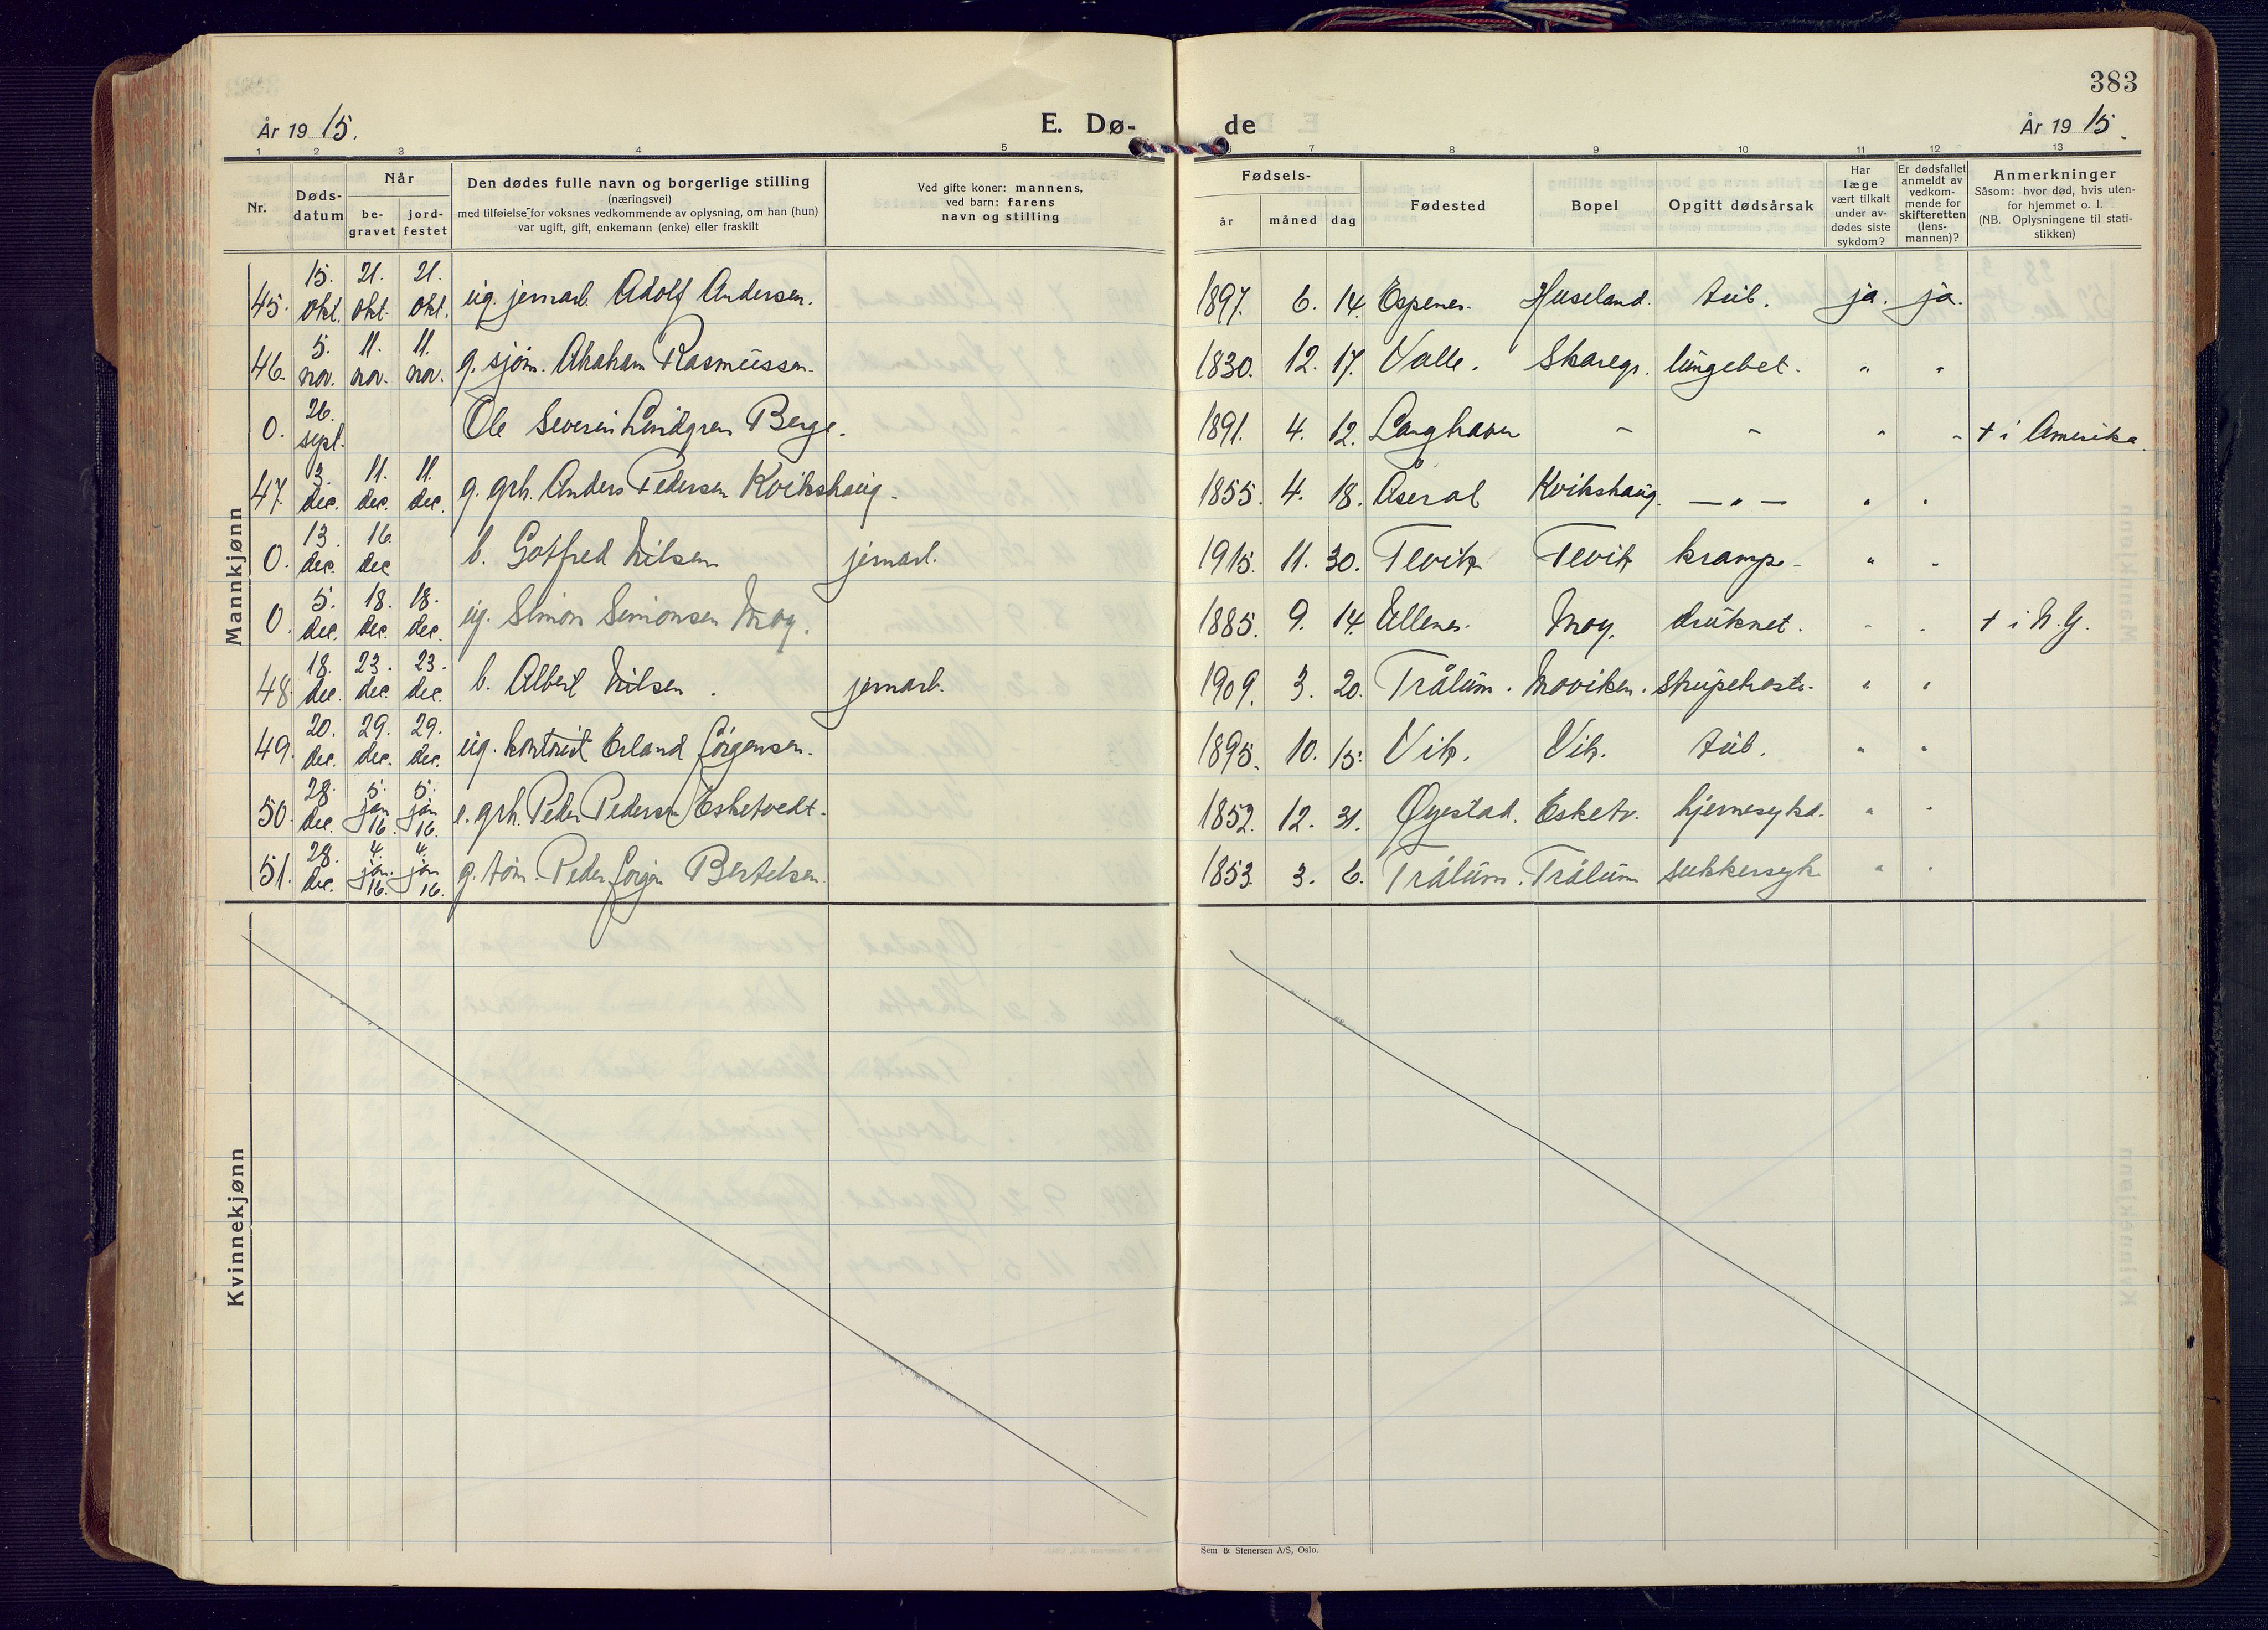 383
År 19 15. E. Dø- de År 19 15.
1 2 3 4 5 7 8 9 10 11 12 13
Nr. Døds-datum Når be-gravet jord-festet Den dødes fulle navn og borgerlige stilling (næringsvei) med tilføielse for voksnes vedkommende av oplysning, om han (hun) var ugift, gift, enkemann (enke) eller fraskilt Ved gifte koner: mannens, ved barn: farens navn og stilling Fødsels- år måned dag Fødested Bopel Opgitt dødsårsak Har læge vært tilkalt under av-dødes siste sykdom? Er dødsfallet anmeldt av vedkom-mende for skifteretten (lens-mannen)? Anmerkninger Såsom: hvor død, hvis uten-for hjemmet o. l. (NB. Oplysningene til stati-stikken)
Mannkjønn
45. 15. okt. 21. okt. 21. okt. ug. jernarb. Adolf Andersen. 1897. 6. 14. Espenes. Huseland. tub. ja. ja.
46. 5. nov. 11. nov. 11. nov. g. sjøm. Abraham Rasmussen. 1830. 12. 17. Valle. Skaregr. lungebet. " "
0. 26. sept. Ole Severin Lindgren Berge. 1891. 4. 12. Langhaven - - " - + i Amerika.
47. 3. dec. 11. dec. 11. dec. g. grb. Anders Pedersen Kvikshaug. 1855. 4. 18. Åseral Kvikshaug. — " — " "
0. 13. dec. 16. dec. b. Gotfred Nilsen jernarb. 1915. 11. 30. Fevik Fevik krampe - " -
0. 5. dec. 18. dec. 18. dec. ug. Simon Simonsen Moy. 1885. 9. 14. Ullenes. Moy. druknet. - - + i N. G.
48. 18. dec. 23. dec. 23. dec. b. Albert Nilsen. jernarb. 1909. 3. 20. Trålum. Moviken. strupehoste. " "
49. 20. dec. 29. dec. 29. dec. ug. kontorist Erland Jørgensen. 1895. 10. 15. Vik. Vik. tub. " "
50. 28. dec. 5. jan 16. 5. jan 16. e. grb. Peder Pedersen Esketvedt. 1852. 12. 31. Øyestad. Esketv. hjernesykd. " "
51. 28. dec. 4. jan. 16. 4. jan 16. g. tøm. Peder Jørgen Bertelsen. 1853. 3. 6. Trålum. Trålum sukkersyk " "
Kvinnekjønn
Sem & Stenersen A/S, Oslo.